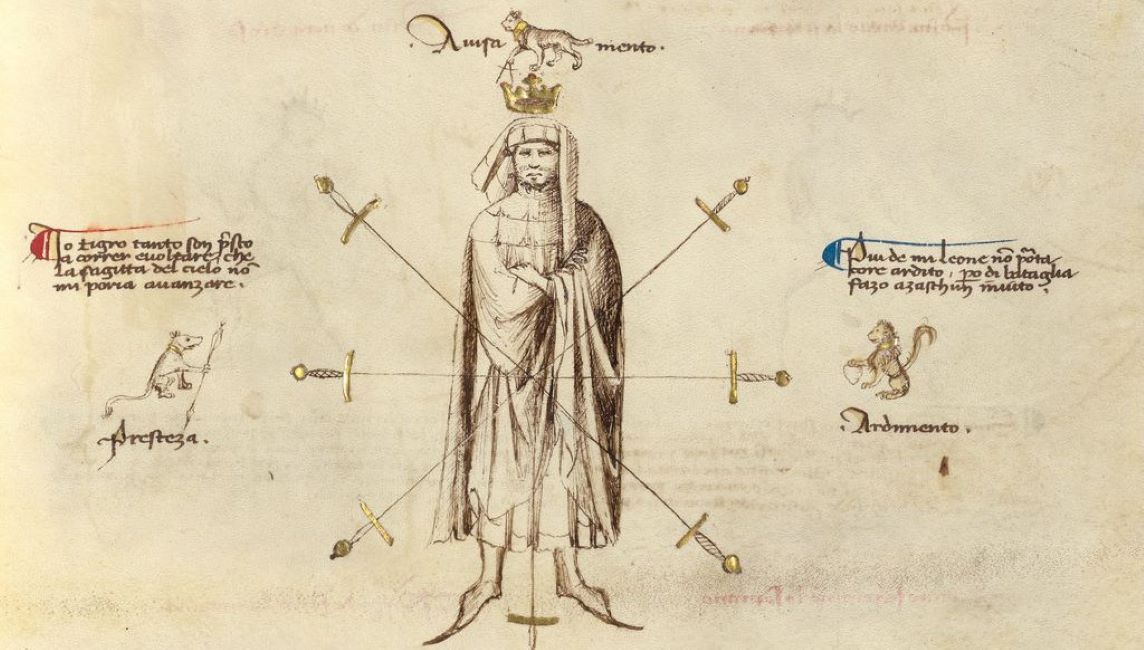 Auisa mento.
Io tigro tanto son p̃sto
a correr e uoltare, che
la sagitta del cielo nõ
mi poria auanzare.
Piu de mi leone nõ porta
core ardito, po di bataglia
fazo azaschun inuito.
Presteza.
Ardimento.